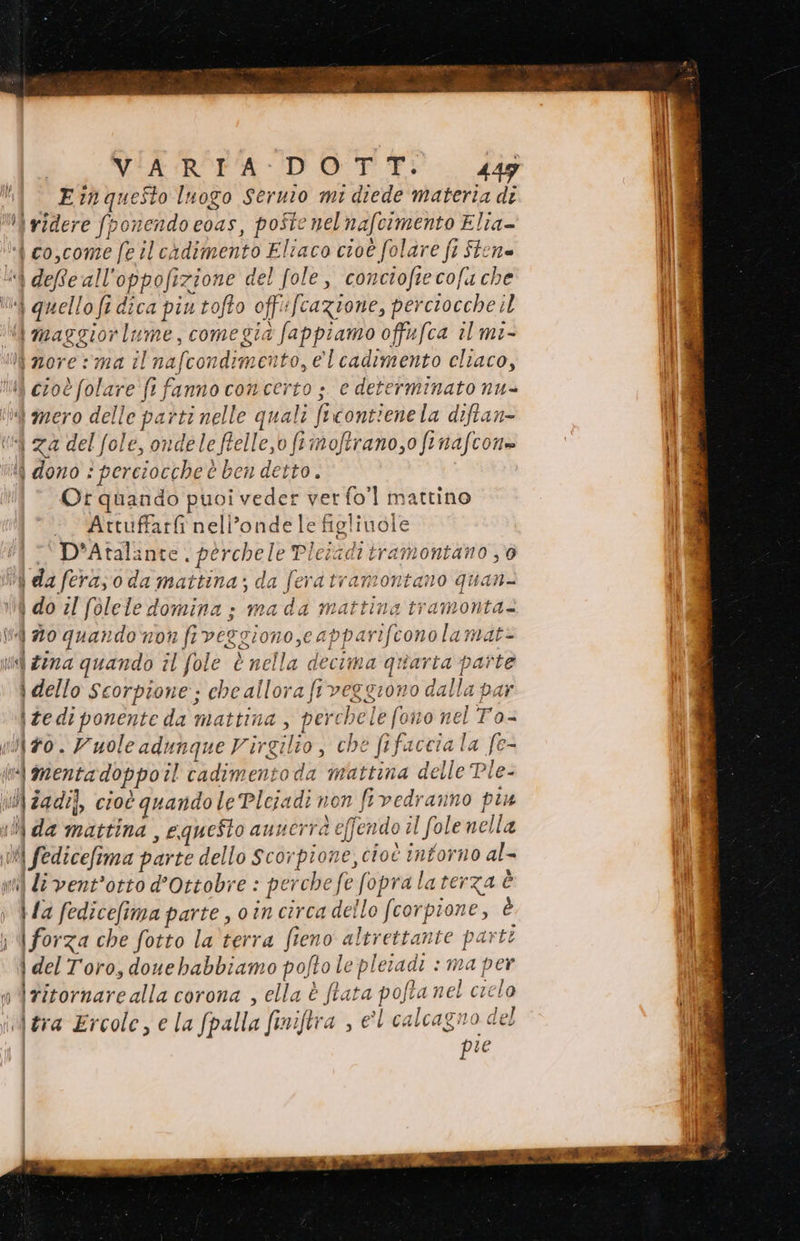 VARIA DOTT. 449
E in queſto luogo Seruio mi diede materia di
ridere ſponendo eoas, poſte nel naſcimento Elia-
co, come ſe il cadimento Eliaco cioè ſolare ſi ſten-
deſſe all'oppoſizione del ſole, concioſiecoſa che
quello ſi dica piu toſto offuſcazione, perciocche il
maggior lume, come già ſappiamo offuſca il mi-
nore: ma il naſcondimento, e'l cadimento eliaco,
cioè ſolare ſi fanno con certo; e determinato nu-
mero delle parti nelle quali ſi contiene la diſtan-
za del ſole, onde le ſtelle, o ſi moſtrano, o ſi naſcon-
dono: perciocche è ben detto.
Or quando puoi veder ver ſo'l mattino
Attuffarſi nell'onde le figliuole
D'Atalante. perche le Pleiadi tramontano, o
da ſera, o da mattina; da ſera tramontano quan-
do il ſole le domina; ma da mattina tramonta-
no quando non ſi veggiono, e appariſcono la mat-
tina quando il ſole è nella decima quarta parte
dello Scorpione; che allora ſi veggiono dalla par
te di ponente da mattina, perche le ſono nel To-
ro. Vuole adunque Virgilio, che ſi faccia la ſe-
menta doppo il cadimento da mattina delle Ple-
iadi, cioè quando le Pleiadi non ſi vedranno piu
da mattina, e queſto auuerrà eſſendo il ſole nella
ſediceſima parte dello Scorpione, cioè intorno al-
li vent'otto d'Ottobre: perche ſe ſopra la terza è
la ſediceſima parte, o in circa dello ſcorpione, è
forza che ſotto la terra ſieno altrettante parti
del Toro, doue habbiamo poſto le pleiadi: ma per
ritornare alla corona, ella è ſtata poſta nel cielo
tra Ercole, e la ſpalla ſiniſtra, e'l calcagno del
pie